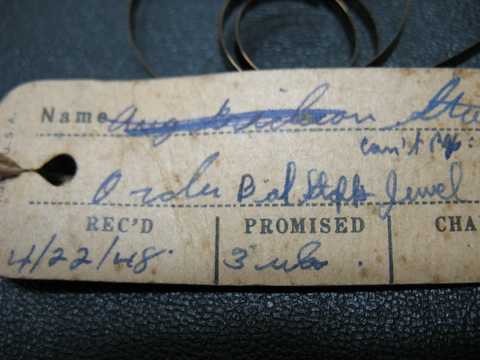 Name
can't
Order Bal Staff Jewel
REC'D PROMISED CHA
4/22/48 3 wks.